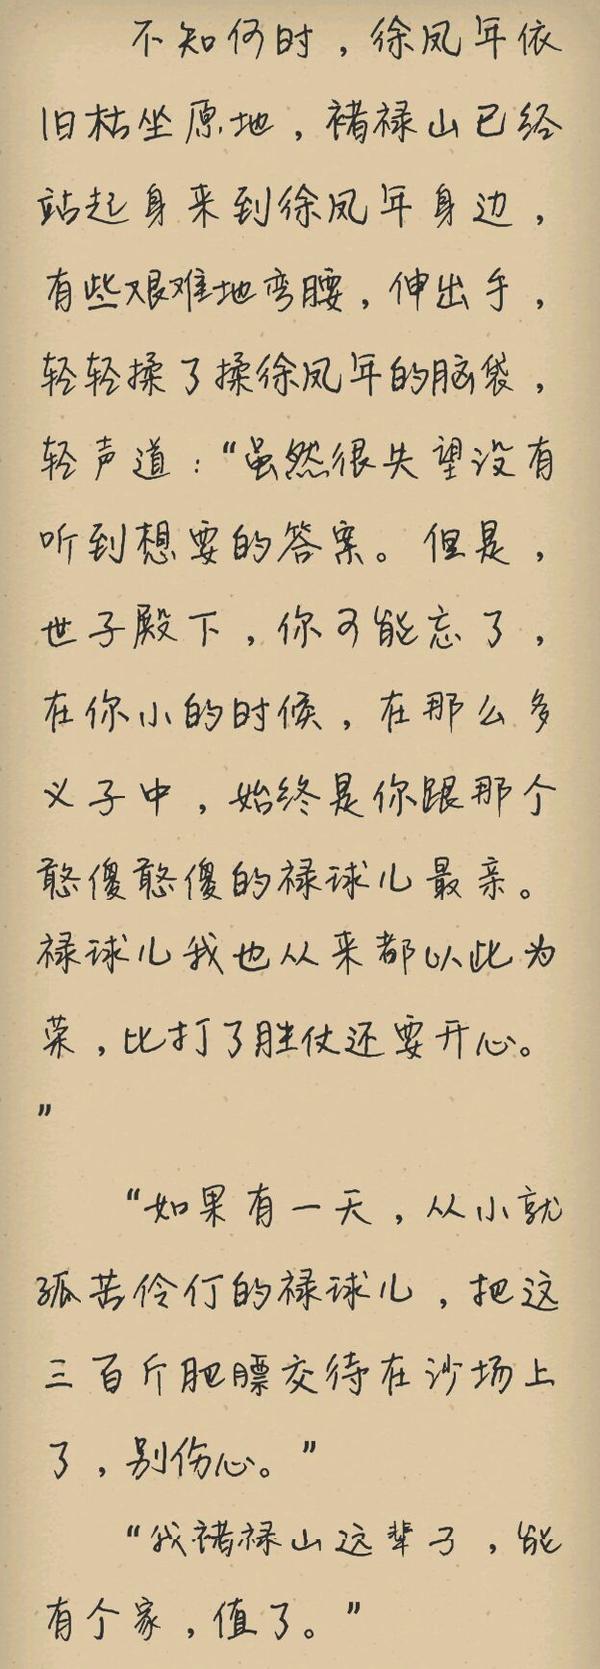 不知何时，徐凤年依
旧枯坐原地，褚禄山已经
站起身来到徐凤年身边，
有些艰难地弯腰，伸出手，
轻轻揉了揉徐凤年的脑袋，
轻声道：“虽然很失望没有
听到想要的答案。但是，
世子殿下，你可能忘了，
在你小的时候，在那么多
义子中，始终是你跟那个
憨傻憨傻的禄球儿最亲。
禄球儿我也从来都以此为
荣，比打了胜仗还要开心。
”
“如果有一天，从小就
孤苦伶仃的禄球儿，把这
三百斤肥膘交待在沙场上
了，别伤心。”
“我褚禄山这辈子，能
有个家，值了。”